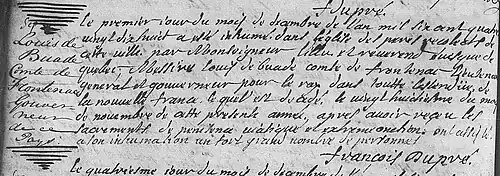 Dupré.
Louis de
Buade
Comte de
Frontenac
Gouver
neur
de ce
Pays.
le premier jour du mois de decembre de l'an mil six cent quatre
vingt dix huit a esté inhumé dans l'eglise des peres recolects de
cette ville par Monseigneur l'ill. et reverend eveque de
quebec, Messire Louis de buade comte de frontenac Lieutenant
general et gouverneur pour le roy dans toute l'estendue de
la nouvelle france, lequel est decedé le vingt huictiesme du mois
de novembre de cette presente année, apres avoir receu les
sacrements de penitence viatique et extremeonction, ont assisté
a son inhumation un fort grand nombre de personnes
françois Dupré.
le quatriesme jour du mois de decembre de l'an